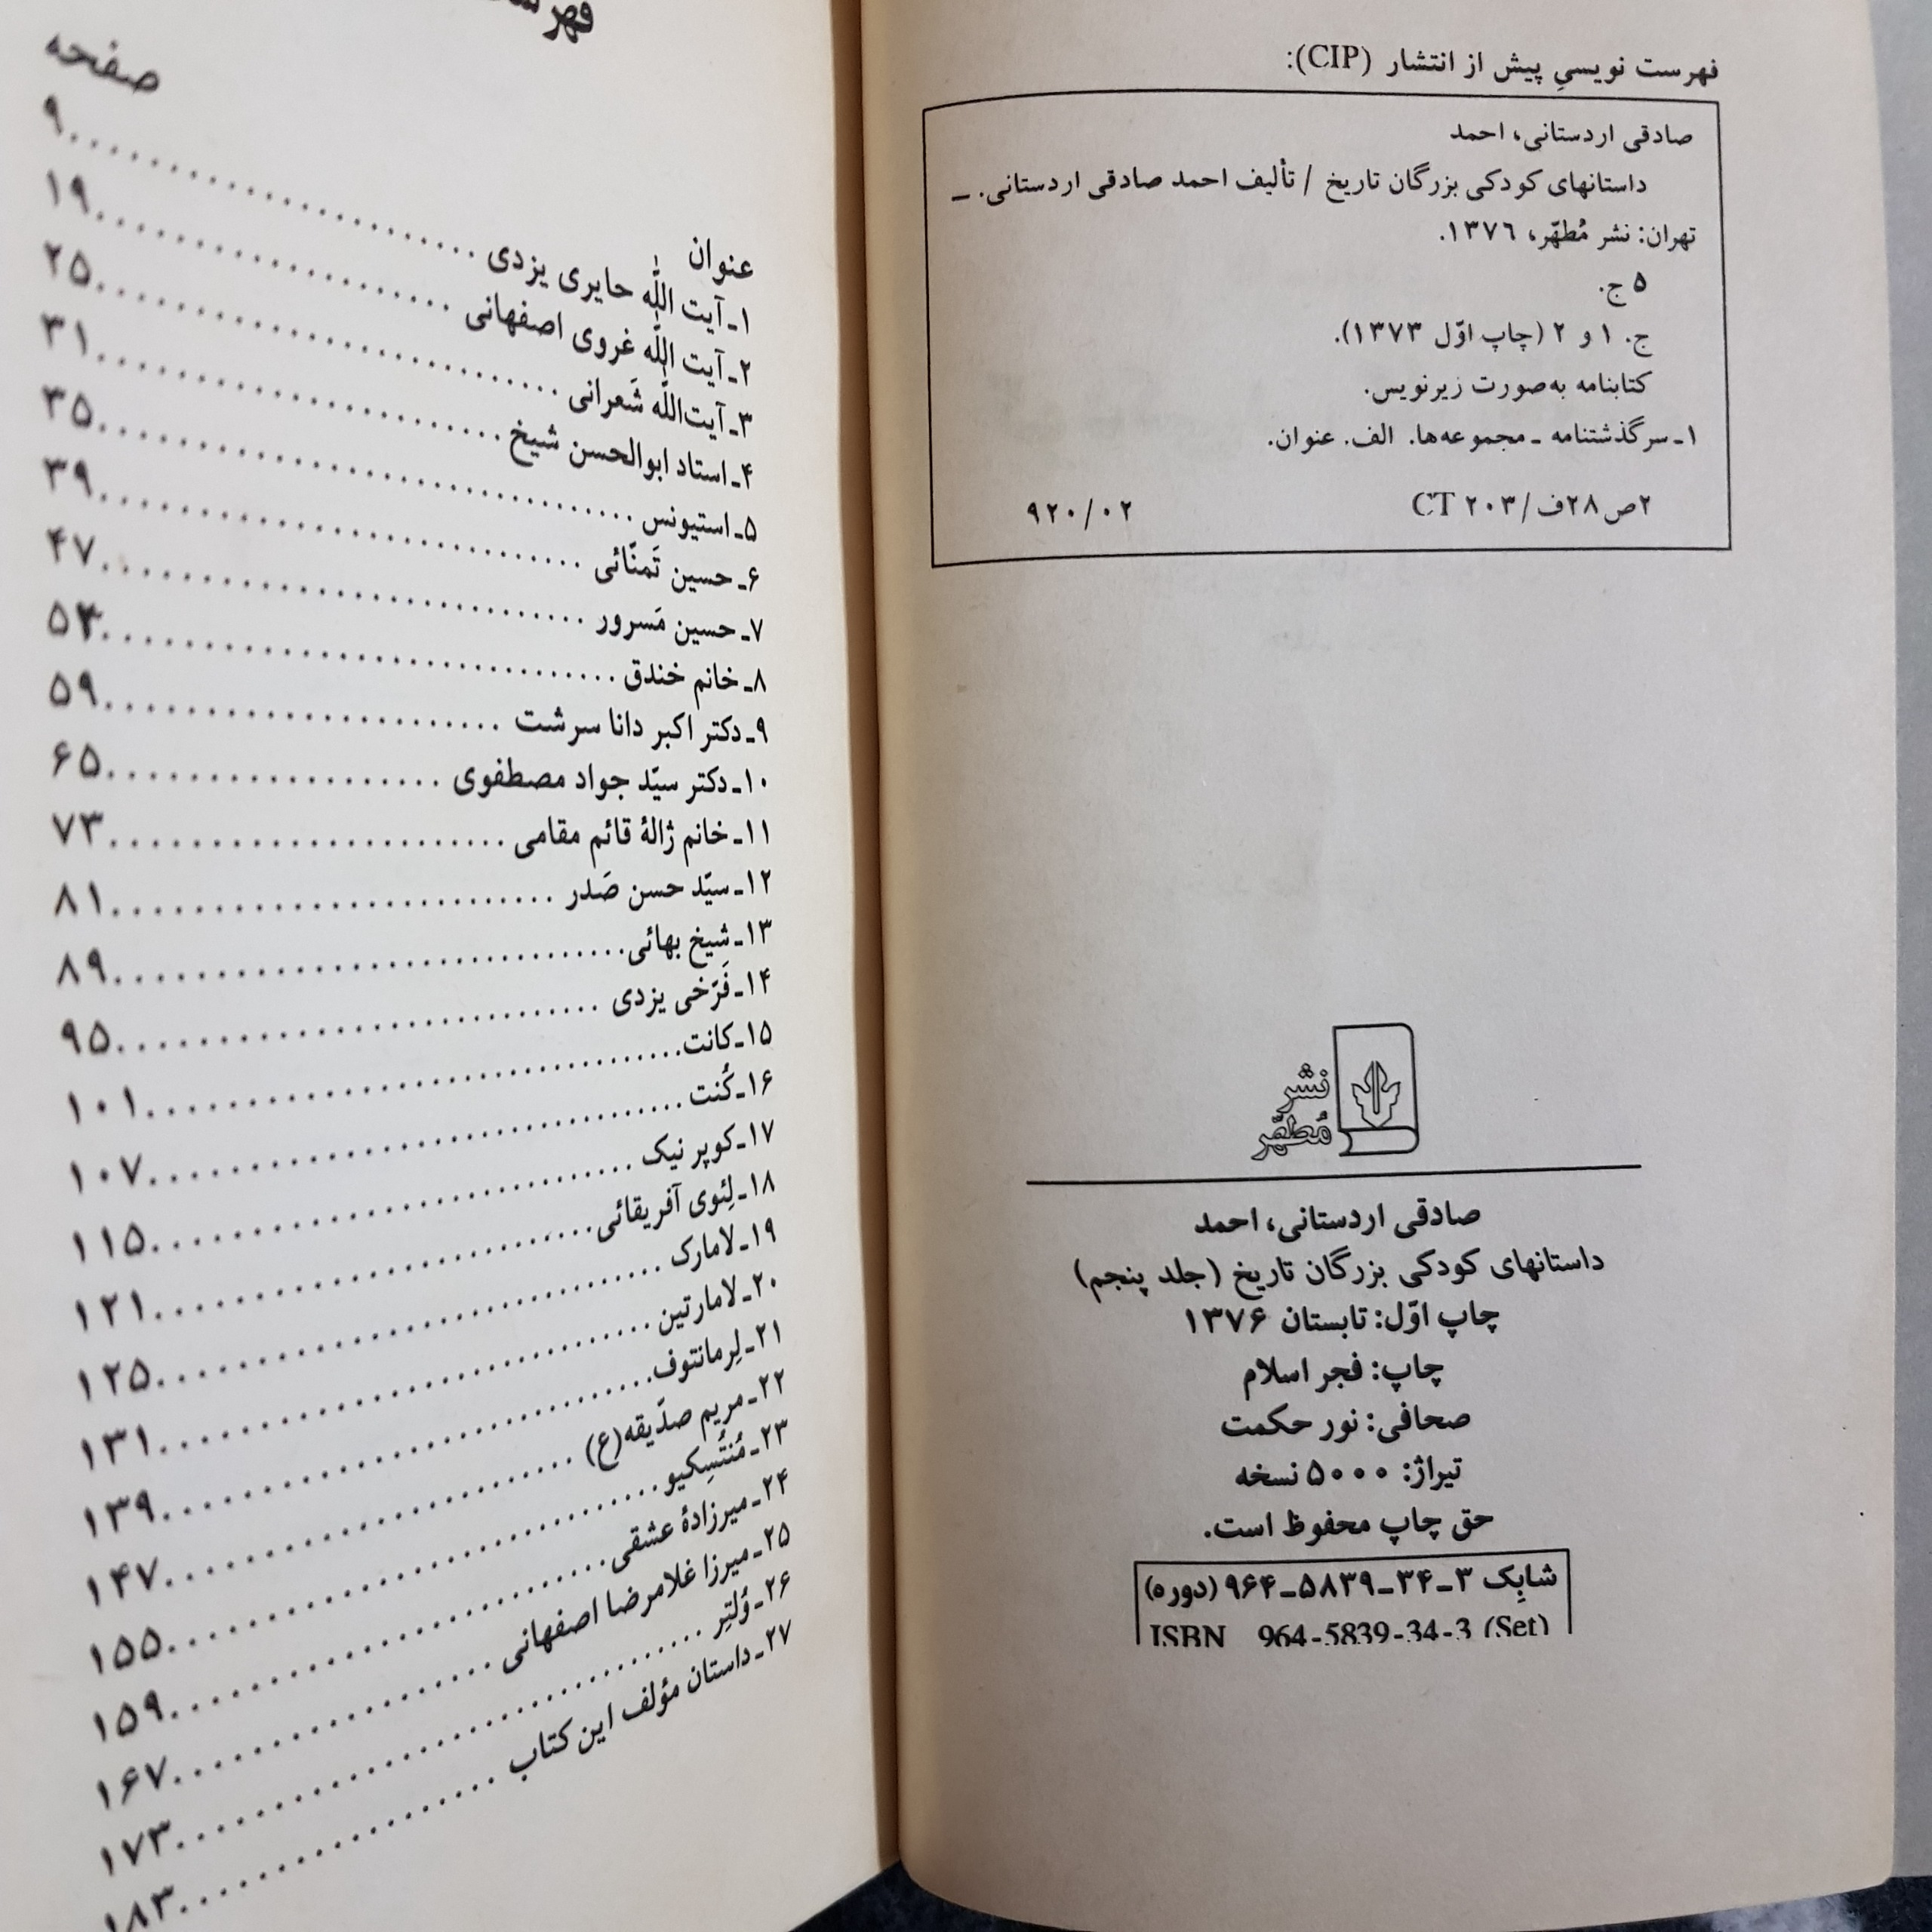 فهرست نویسیِ پیش از انتشار (CIP):
صادقی اردستانی، احمد
داستانهای کودکی بزرگان تاریخ / تألیف احمد صادقی اردستانی. ـ
تهران: نشر مُطهّر، ۱۳۷٦.
۵ ج.
ج. ۱ و ۲ (چاپ اوّل ۱۳۷۳).
کتابنامه به‌صورت زیرنویس.
۱ـ سرگذشتنامه ـ مجموعه‌ها. الف. عنوان.
۲ص۲۸ف/۲۰۳ CT ۹۲۰/۰۲
نشر
مُطهّر
صادقی اردستانی، احمد
داستانهای کودکی بزرگان تاریخ (جلد پنجم)
چاپ اوّل: تابستان ۱۳۷۶
چاپ: فجر اسلام
صحافی: نور حکمت
تیراژ: ۵۰۰۰ نسخه
حق چاپ محفوظ است.
شابِک ۳ـ۳۴ـ۵۸۳۹ـ۹۶۴ (دوره)
ISBN 964-5839-34-3 (Set)
عنوان صفحه
۱ـ آیت اللّه حایری یزدی ........ ۹
۲ـ آیت اللّه غروی اصفهانی ........ ۱۹
۳ـ آیت‌اللّه شَعرانی ........ ۲۵
۴ـ استاد ابوالحسن شیخ ........ ۳۱
۵ـ استیونس ........ ۳۵
۶ـ حسین تَمنّائی ........ ۳۹
۷ـ حسین مَسرور ........ ۴۷
۸ـ خانم خندق ........ ۵۳
۹ـ دکتر اکبر دانا سرشت ........ ۵۹
۱۰ـ دکتر سیّد جواد مصطفوی ........ ۶۵
۱۱ـ خانم ژالهٔ قائم مقامی ........ ۷۳
۱۲ـ سیّد حسن صَدر ........ ۸۱
۱۳ـ شیخ بهائی ........ ۸۹
۱۴ـ فَرّخی یزدی ........ ۹۵
۱۵ـ کانت ........ ۱۰۱
۱۶ـ کُنت ........ ۱۰۷
۱۷ـ کوپر نیک ........ ۱۱۵
۱۸ـ لِئوی آفریقائی ........ ۱۲۱
۱۹ـ لامارک ........ ۱۲۵
۲۰ـ لامارتین ........ ۱۳۱
۲۱ـ لِرمانتوف ........ ۱۳۹
۲۲ـ مریم صدّیقه(ع) ........ ۱۴۷
۲۳ـ مُنتُسِکیو ........ ۱۵۵
۲۴ـ میرزادهٔ عشقی ........ ۱۵۹
۲۵ـ میرزا غلامرضا اصفهانی ........ ۱۶۷
۲۶ـ وُلتِر ........ ۱۷۳
۲۷ـ داستان مؤلف این کتاب ........ ۱۸۳